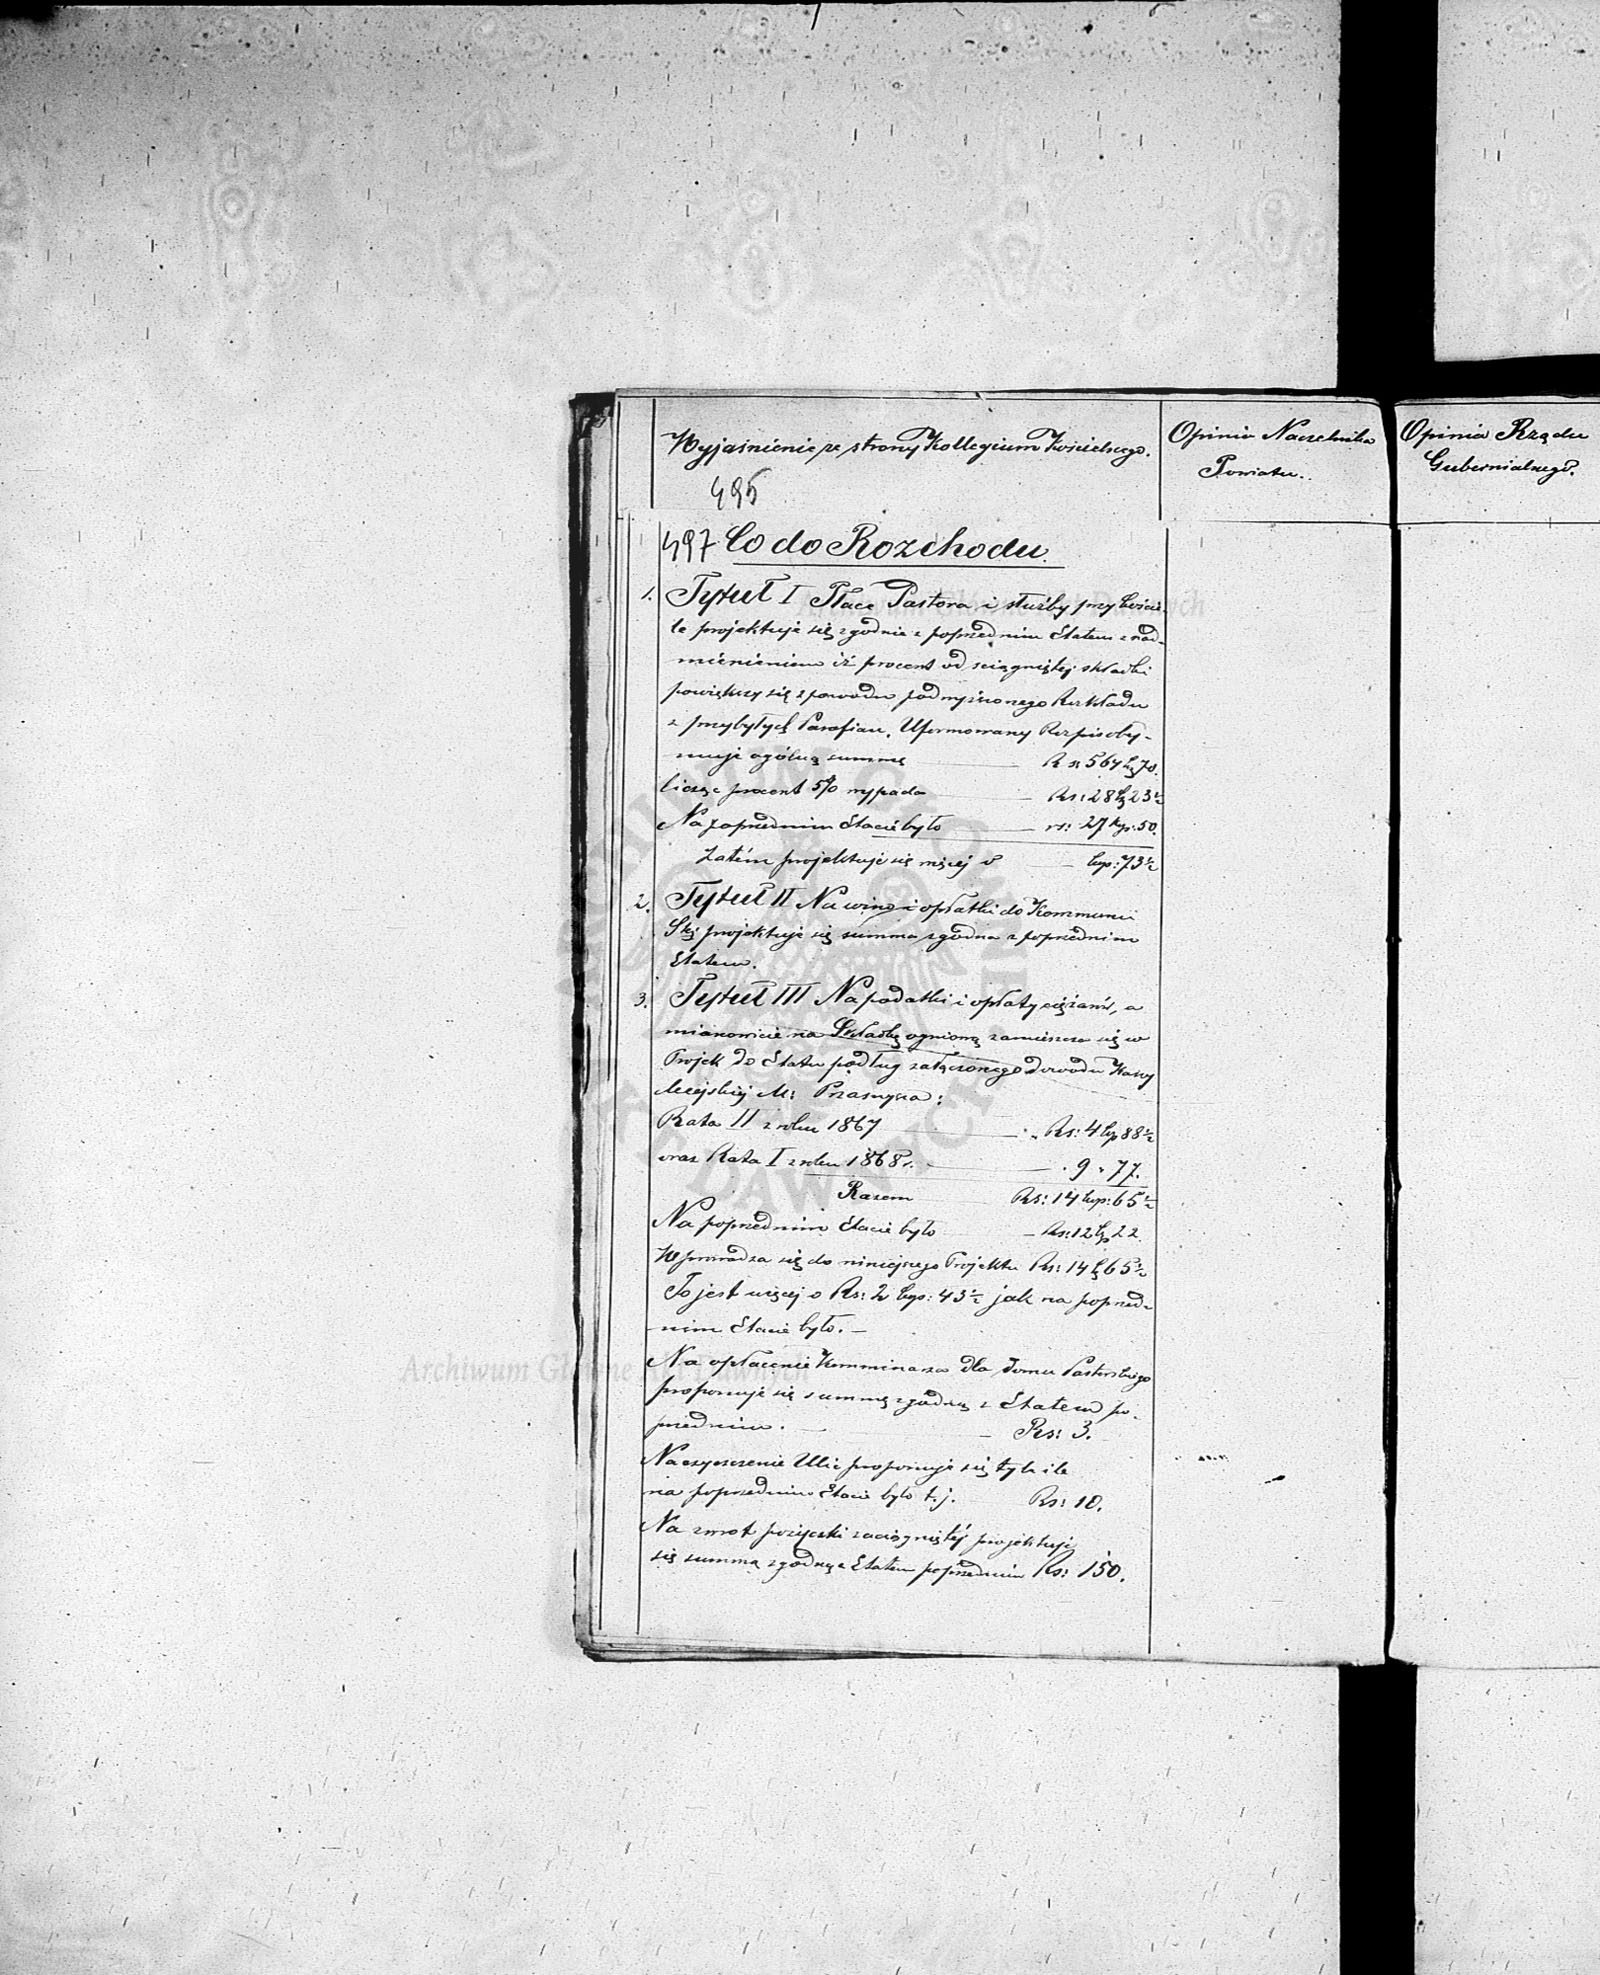 Wyjaśnienie ze strony Kollegium Kościelnego.
Opinia Naczelnika
Powiatu.
Opinia Rządu
Gubernialnego.
495
497 Co do Rozchodu.
1. Tytuł I Płace Pastora i służby przy koście-
le projektuje się zgodnie z poprzednim Etatem z nad-
mienieniem iż procent od ściągniętej składki
powiększy się z powodu podwyższonego Rozkładu
z przybyłych Parafian. Uformowany Rozpis oby-
muje ogólną summę Rs: 564 k. 70.
licząc procent 5% wypada Rs: 28 k. 23½
Na poprzednim Etacie było rs: 27 kop: 50.
Zatém projektuje się więcej o kop: 73½
2. Tytuł II Na wino i opłatki do Kommunii
Stej projektuje się summa zgodna z poprzednim
Etatem.
3. Tytuł III Na podatki i opłaty ciężarów, a
mianowicie na Składkę ogniową zamieszcza się w
Projek do Etatu podług załączonego dowodu Kassy
Miejskiéj M: Przasnysza:
Rata II z roku 1867 Rs: 4 kop 88½
oraz Rata I z roku 1868 r. 9 " 77.
Razem Rs: 14 kop: 65½
Na poprzednim Etacie było Rs: 12 k. 22.
Wprowadza się do niniejszego Projektu Rs: 14 k. 65½
To jest więcej o Rs: 2 kop: 43½ jak na poprzed-
nim Etacie było. —
Na opłacenie Kominiarza dla domu Pastorskiego
proponuje się summę zgodną z Etatem po-
przednim. Rs: 3.
Na czyszczenie Ulic proponuje się tyle ile
na poprzednim Etacie było t. j. Rs: 10.
Na zwrot pożyczki zaciągniętéj projektuje
się summą zgodną z Etatem poprzednim Rs: 150.
Archiwum Główne Akt Dawnych